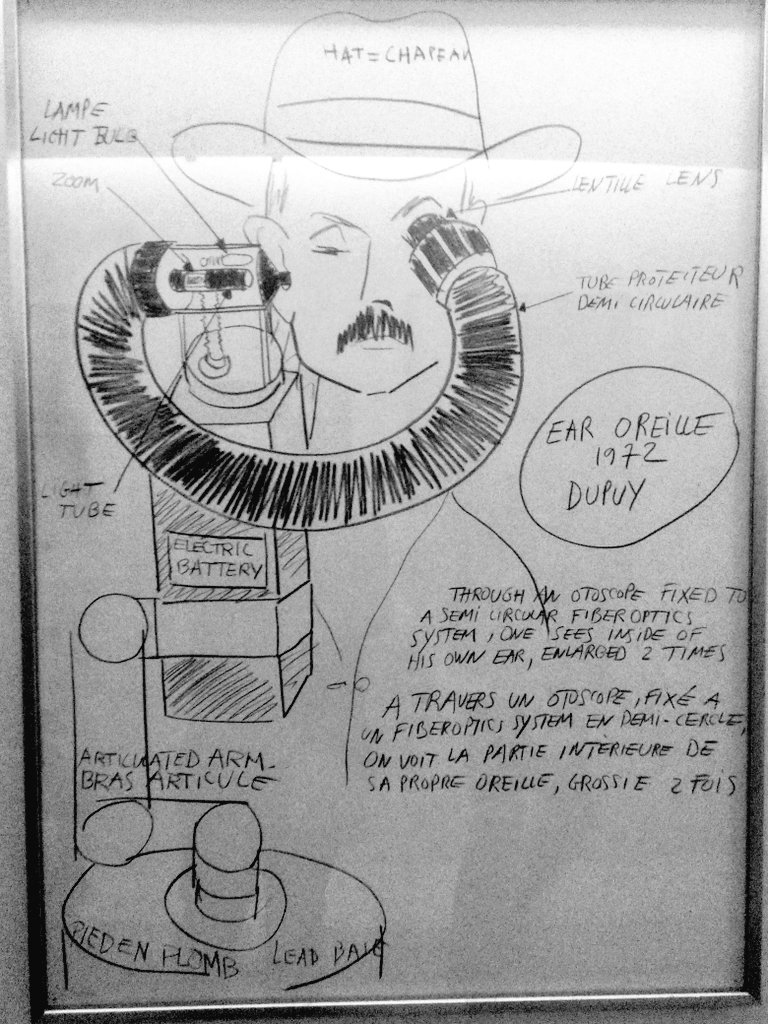 HAT = CHAPEAU
LAMPE
LIGHT BULB
ZOOM
LENTILLE LENS
TUBE PROTECTEUR
DEMI CIRCULAIRE
EAR OREILLE
1972
DUPUY
LIGHT
TUBE
ELECTRIC
BATTERY
THROUGH AN OTOSCOPE FIXED TO
A SEMI CIRCULAR FIBEROPTICS
SYSTEM, ONE SEES INSIDE OF
HIS OWN EAR, ENLARGED 2 TIMES
A TRAVERS UN OTOSCOPE, FIXÉ A
UN FIBEROPTICS SYSTEM EN DEMI-CERCLE,
ON VOIT LA PARTIE INTÈRIEURE DE
SA PROPRE OREILLE, GROSSIE 2 FOIS
ARTICULATED ARM-
BRAS ARTICULE
PIED EN PLOMB LEAD BASE